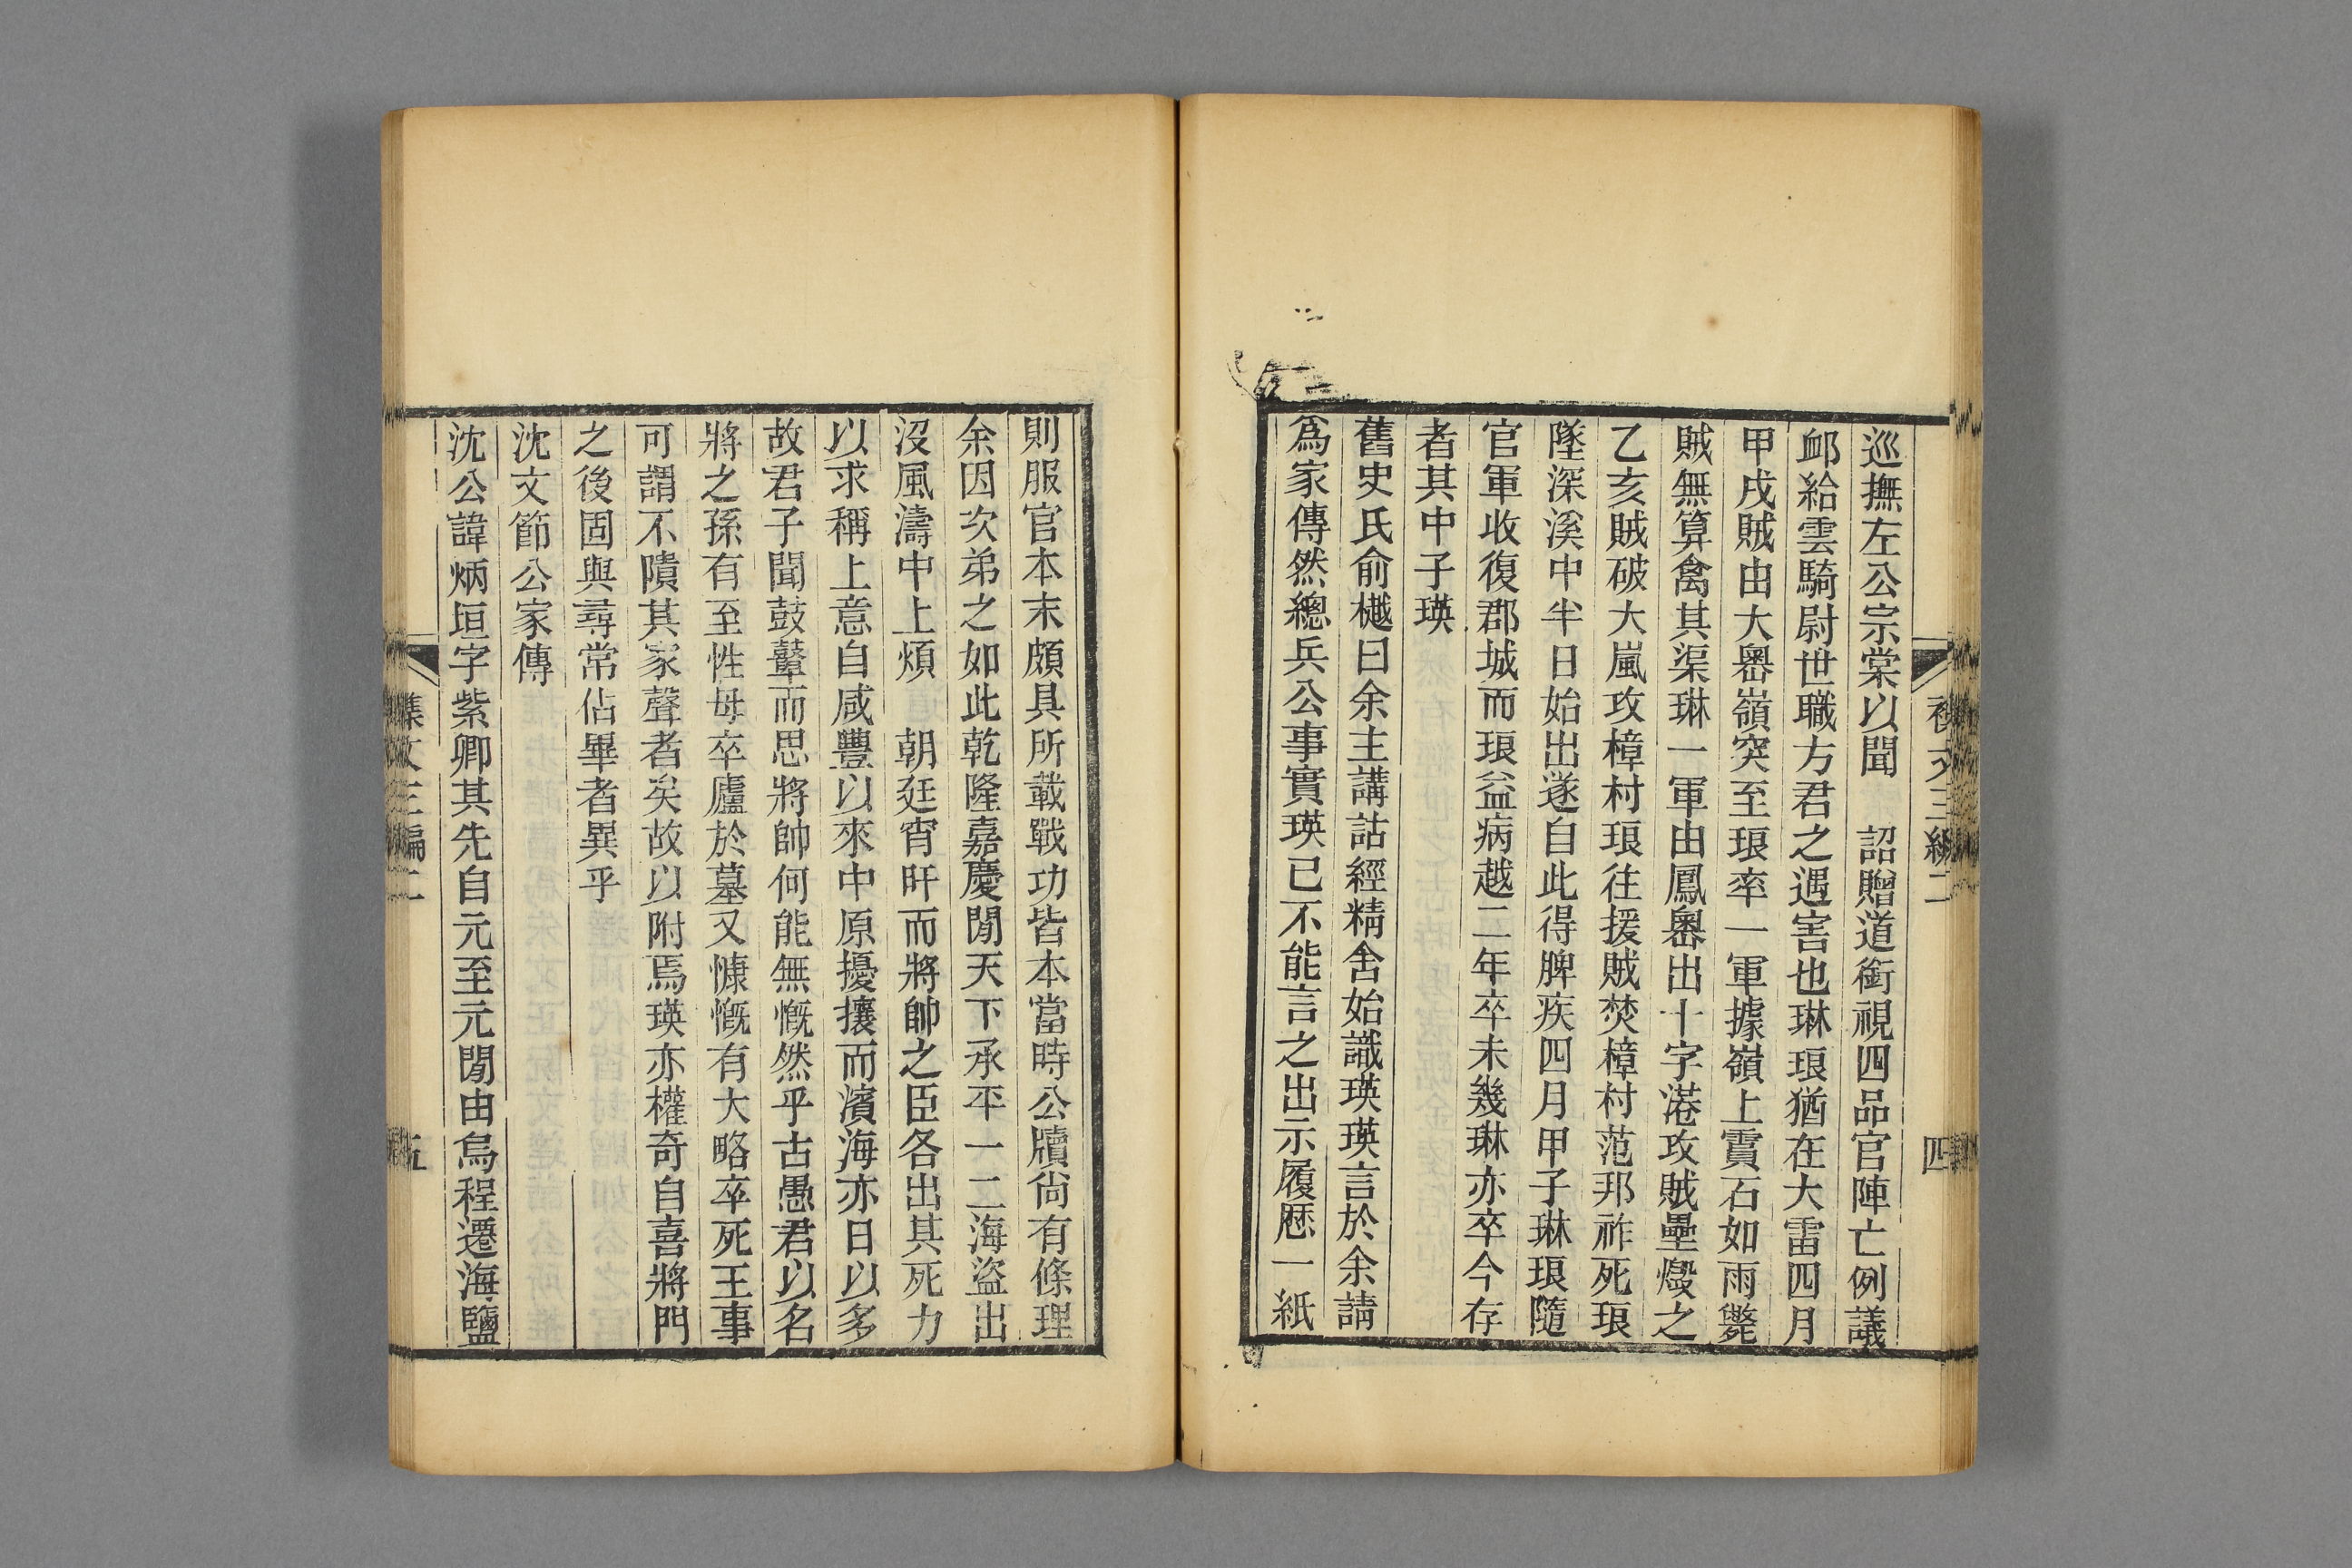 巡撫左公宗棠以聞　詔贈道銜視四品官陣亡例議
卹給雲騎尉世職方君之遇害也琳琅猶在大雷四月
甲戌賊由大嶴嶺突至琅率一軍據嶺上霣石如雨斃
賊無算禽其渠琳一軍由鳳嶴出十字港攻賊壘燬之
乙亥賊破大嵐攻樟村琅往援賊焚樟村范邦祚死琅
墜深溪中半日始出遂自此得脾疾四月甲子琳琅隨
官軍收復郡城而琅益病越二年卒未幾琳亦卒今存
者其中子瑛
舊史氏俞樾曰余主講詁經精舍始識瑛瑛言於余請
爲家傳然總兵公事實瑛已不能言之出示履歷一紙
則服官本末頗具所載戰功皆本當時公牘尚有條理
余因次弟之如此乾隆嘉慶閒天下承平一二海盜出
沒風濤中上煩　朝廷宵旰而將帥之臣各出其死力
以求稱上意自咸豐以來中原擾攘而濱海亦日以多
故君子聞鼓鼙而思將帥何能無慨然乎古愚君以名
將之孫有至性母卒廬於墓又慷慨有大略卒死王事
可謂不隤其家聲者矣故以附焉瑛亦權奇自喜將門
之後固與尋常佔畢者異乎
沈文節公家傳
沈公諱炳垣字紫卿其先自元至元閒由烏程遷海鹽